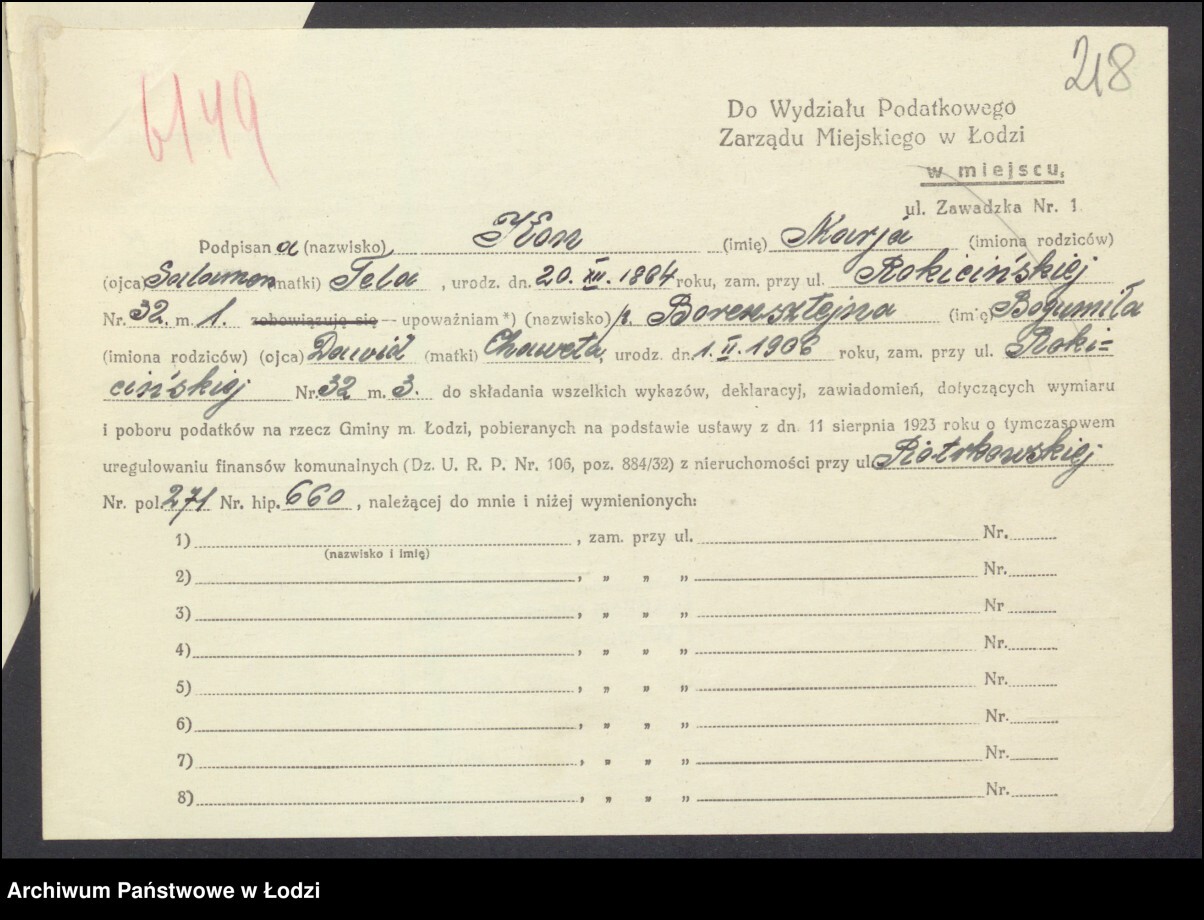 6149
218
Do Wydziału Podatkowego
Zarządu Miejskiego w Łodzi
w miejscu,
ul. Zawadzka Nr. 1
Podpisana (nazwisko) Kon (imię) Marja (imiona rodziców)
(ojca) Salamon (matki) Tela, urodz. dn. 20. XII. 1864 roku, zam. przy ul. Rokicińskiej
Nr. 32. m. 1. zobowiązuję się — upoważniam *) (nazwisko) p. Borensztejna (imię) Bogumiła
(imiona rodziców) (ojca) Dawid (matki) Chaweta, urodz. dn. 1. II. 1906 roku, zam. przy ul. Roki=
cińskiej Nr. 32 m. 3. do składania wszelkich wykazów, deklaracyj, zawiadomień, dotyczących wymiaru
i poboru podatków na rzecz Gminy m. Łodzi, pobieranych na podstawie ustawy z dn. 11 sierpnia 1923 roku o tymczasowem
uregulowaniu finansów komunalnych (Dz. U. R. P. Nr. 106, poz. 884/32) z nieruchomości przy ul. Piotrkowskiej
Nr. pol. 271 Nr. hip. 660, należącej do mnie i niżej wymienionych:
1) , zam. przy ul. Nr.
(nazwisko i imię)
2) , „ „ „ Nr.
3) , „ „ „ Nr
4) , „ „ „ Nr.
5) , „ „ „ Nr.
6) , „ „ „ Nr.
7) , „ „ „ Nr.
8) , „ „ „ Nr.
Archiwum Państwowe w Łodzi